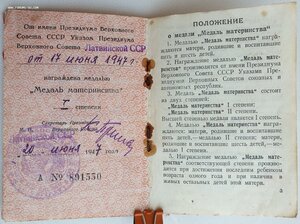 От имени Президиума Верховного
Совета СССР Указом Президиума
Верховного Совета Латвийской ССР
от 17 июня 1947 г.
награждена медалью
„Медаль материнства“
I степени
Секретарь Президиума
20 июня 1947 года
А № 891550
ПОЛОЖЕНИЕ
о медали „Медаль материнства“
1. Медалью „Медаль материнства“ награждаются
матери, родившие и воспитавшие
пять и шесть детей.
2. Награждение медалью „Медаль материнства“
производится от имени Президиума
Верховного Совета СССР указами Президиумов
Верховных Советов союзных и автономных
республик.
3. „Медаль материнства“ состоит
из двух степеней:
„Медаль материнства“ I степени,
„Медаль материнства“ II степени.
Высшей степенью медали является I степень.
4. Медалью „Медаль материнства“ награждаются
матери, родившие и воспитавшие
пять детей,— медалью II степени;
матери, родившие и воспитавшие шесть
детей,— медалью I степени.
5. Награждение медалью „Медаль материнства“
производится
при достижении последним ребенком
возраста одного года и при наличии в
живых остальных детей этой матери.
3